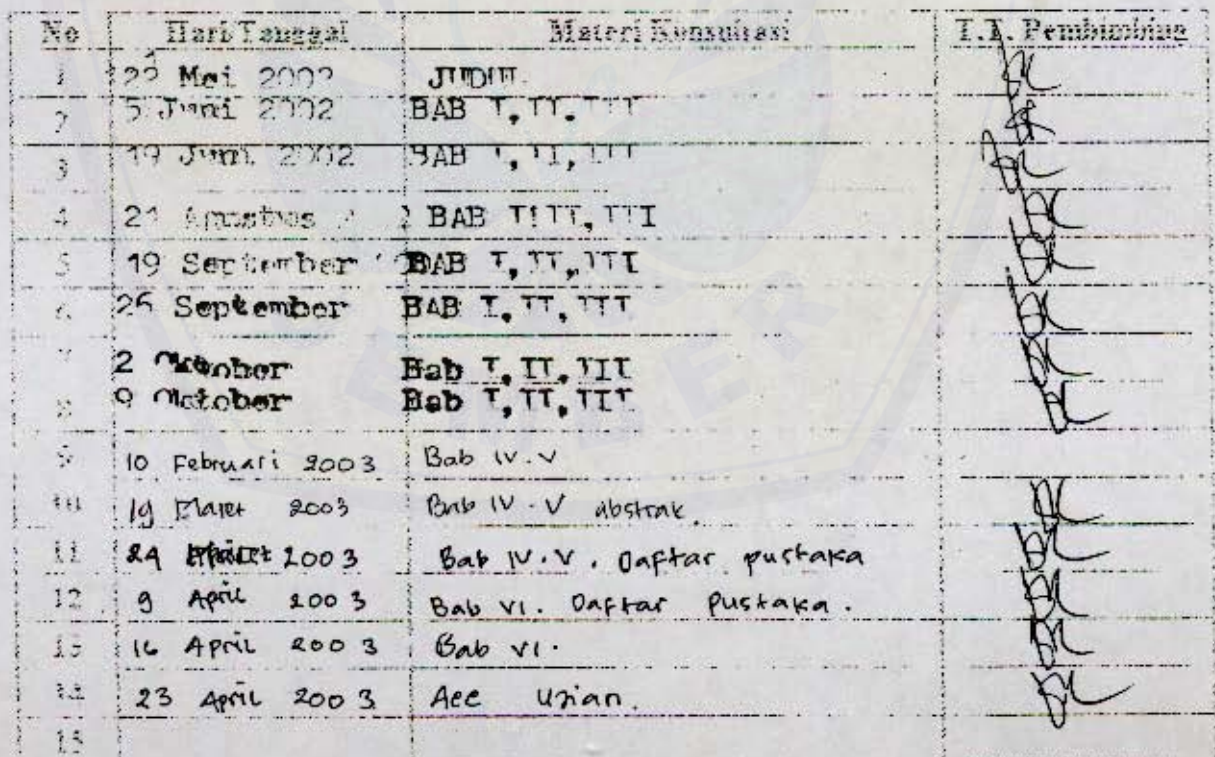 No Hari/Tanggal Materi Konsultasi T.T. Pembimbing
1 22 Mei 2002 JUDUL
2 5 Juni 2002 BAB I, II. III
3 19 Juni 2002 BAB I, II, III
4 21 Agustus BAB III, III
5 19 September BAB I, II, III
6 September BAB I, II, III
7 2 Oktober Bab I, II, III
8 9 Oktober Bab I, II, III
9 10 Februari 2003 Bab IV.V
10 19 Maret 2003 Bab IV.V abstrak
11 24 2003 Bab IV.V. Daftar pustaka
12 9 April 2003 Bab VI. Daftar Pustaka.
13 16 April 2003 Bab VI.
14 23 April 2003 Acc Ujian.
15